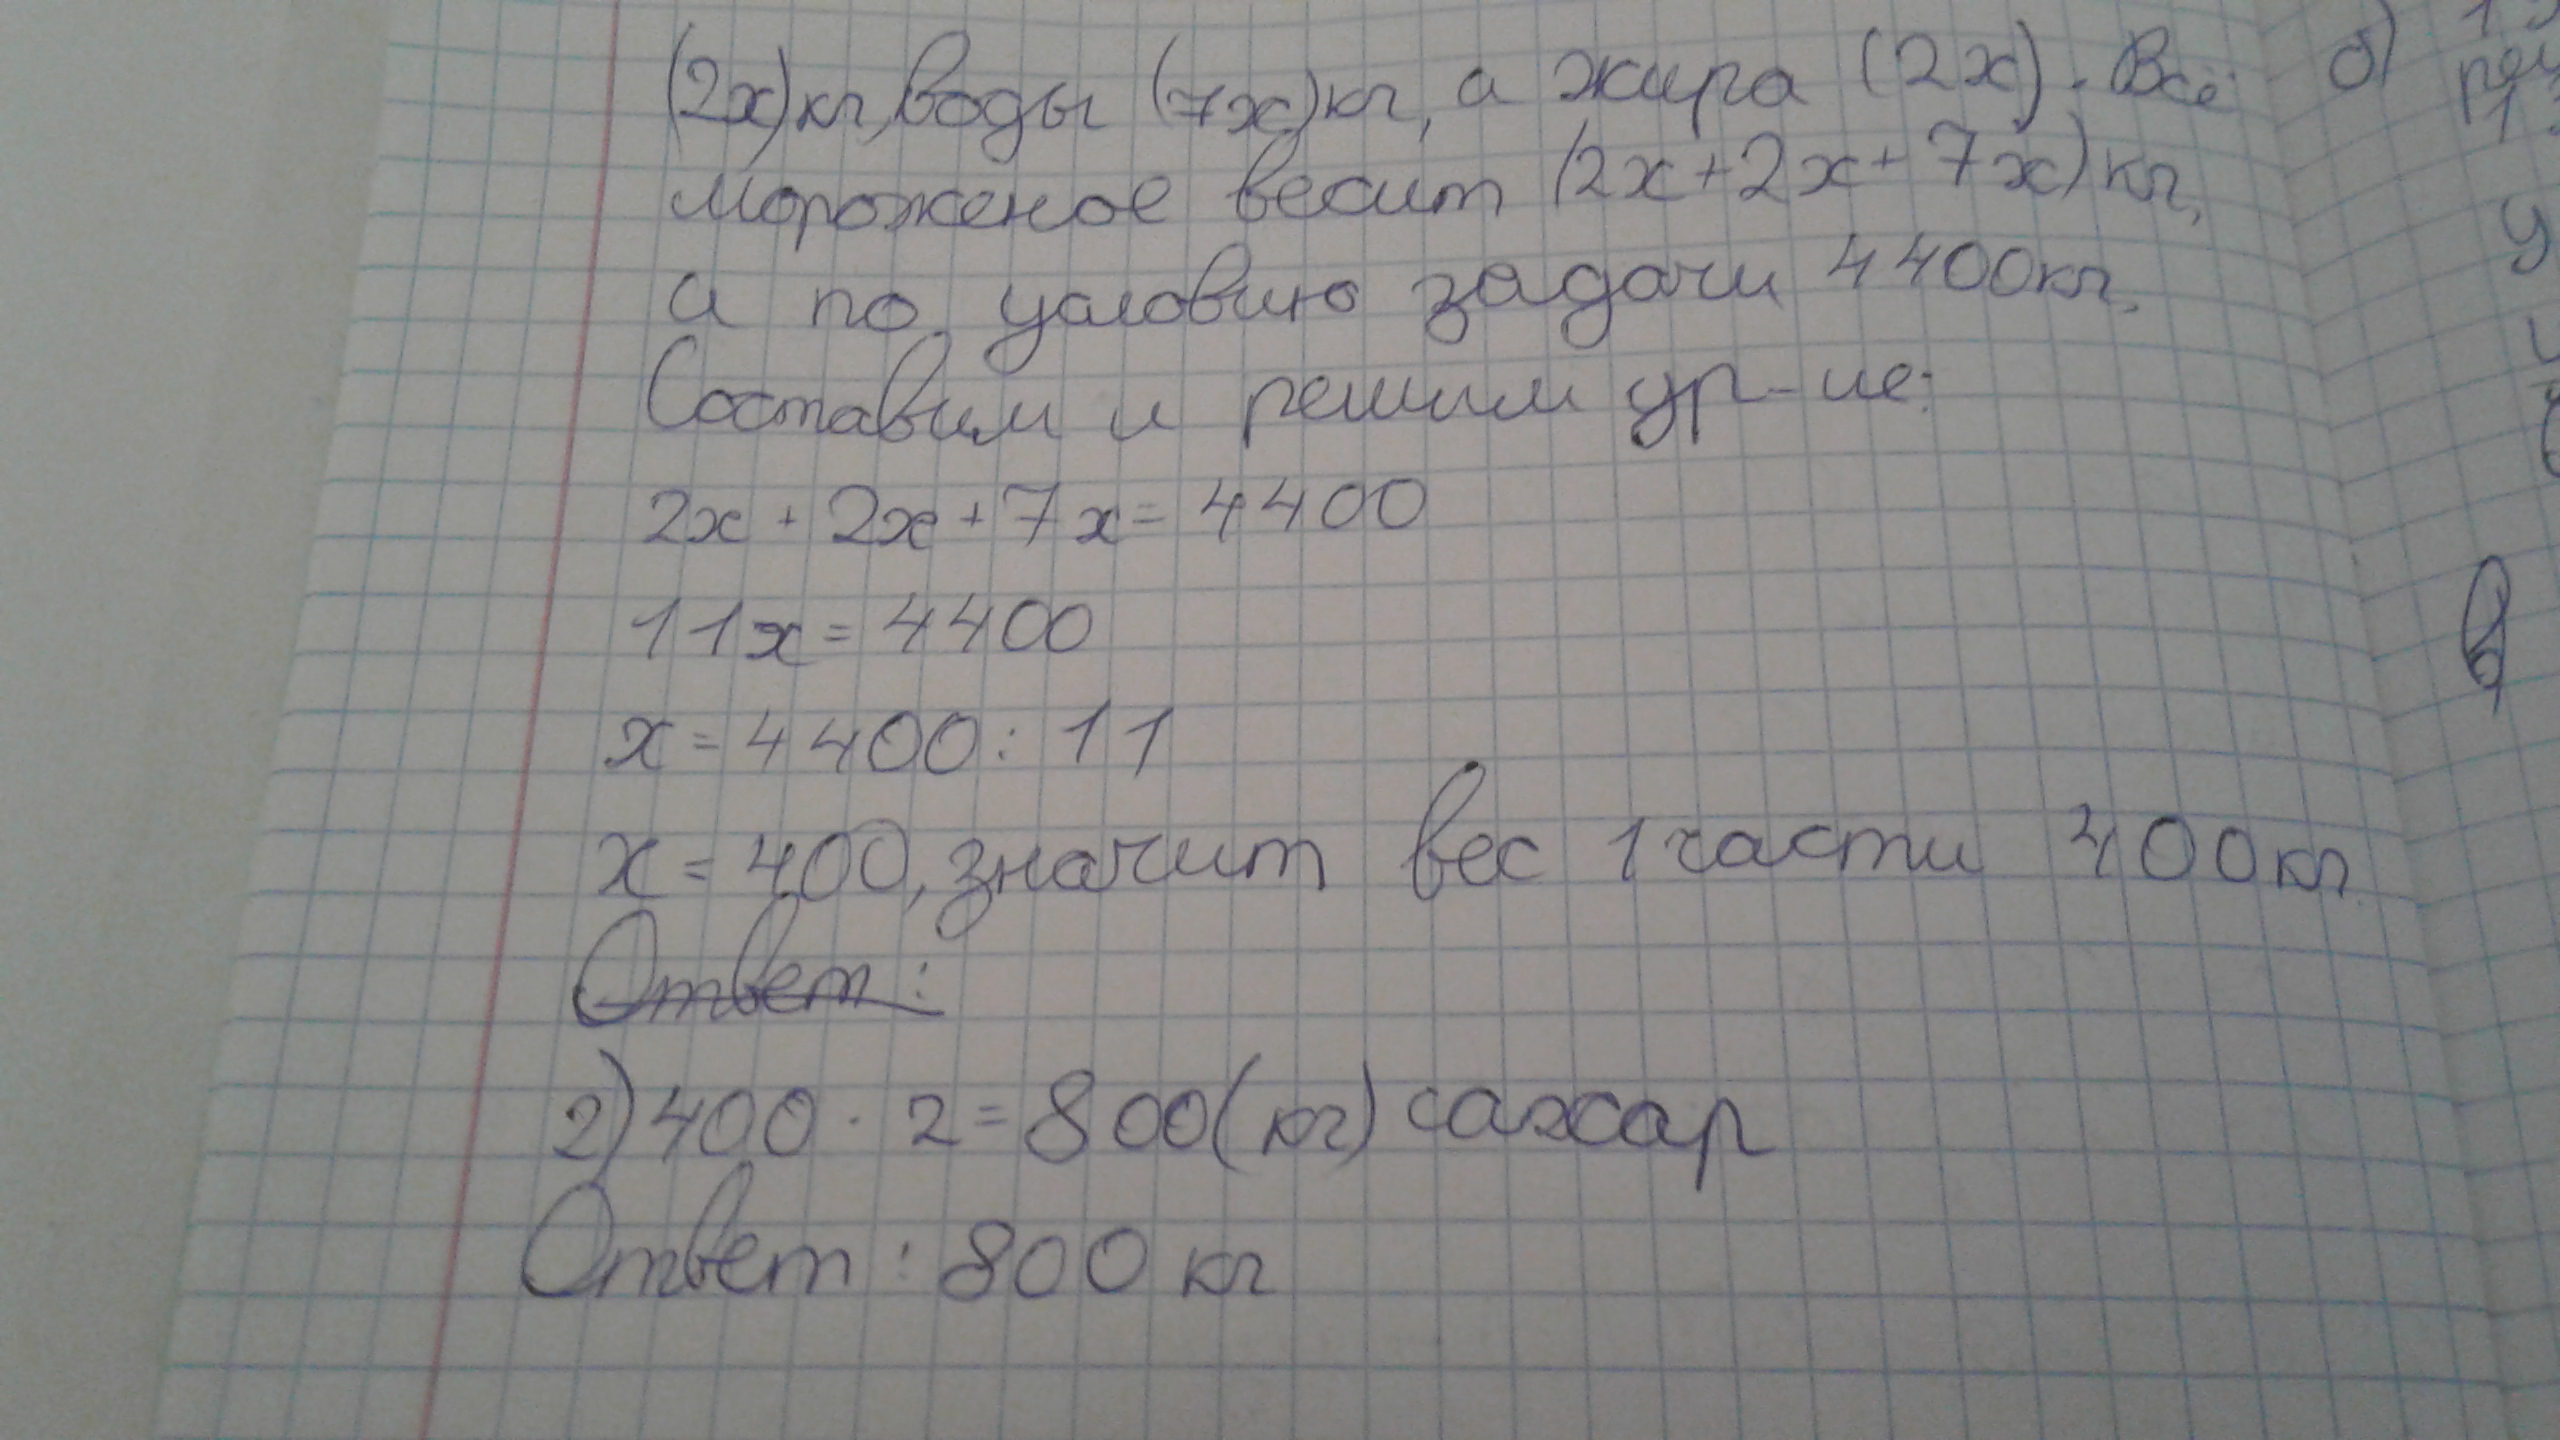 (2x)кг, воды (7x)кг, а жира (2x). Всё
мороженое весит (2x+2x+7x)кг,
и по условию задачи 4400кг.
Составим и решим ур-ие:
2x + 2x + 7x = 4400
11x = 4400
x = 4400 : 11
x = 400, значит вес 1 части 400кг.
Ответ:
2) 400 · 2 = 800 (кг) сахар
Ответ: 800 кг
б)